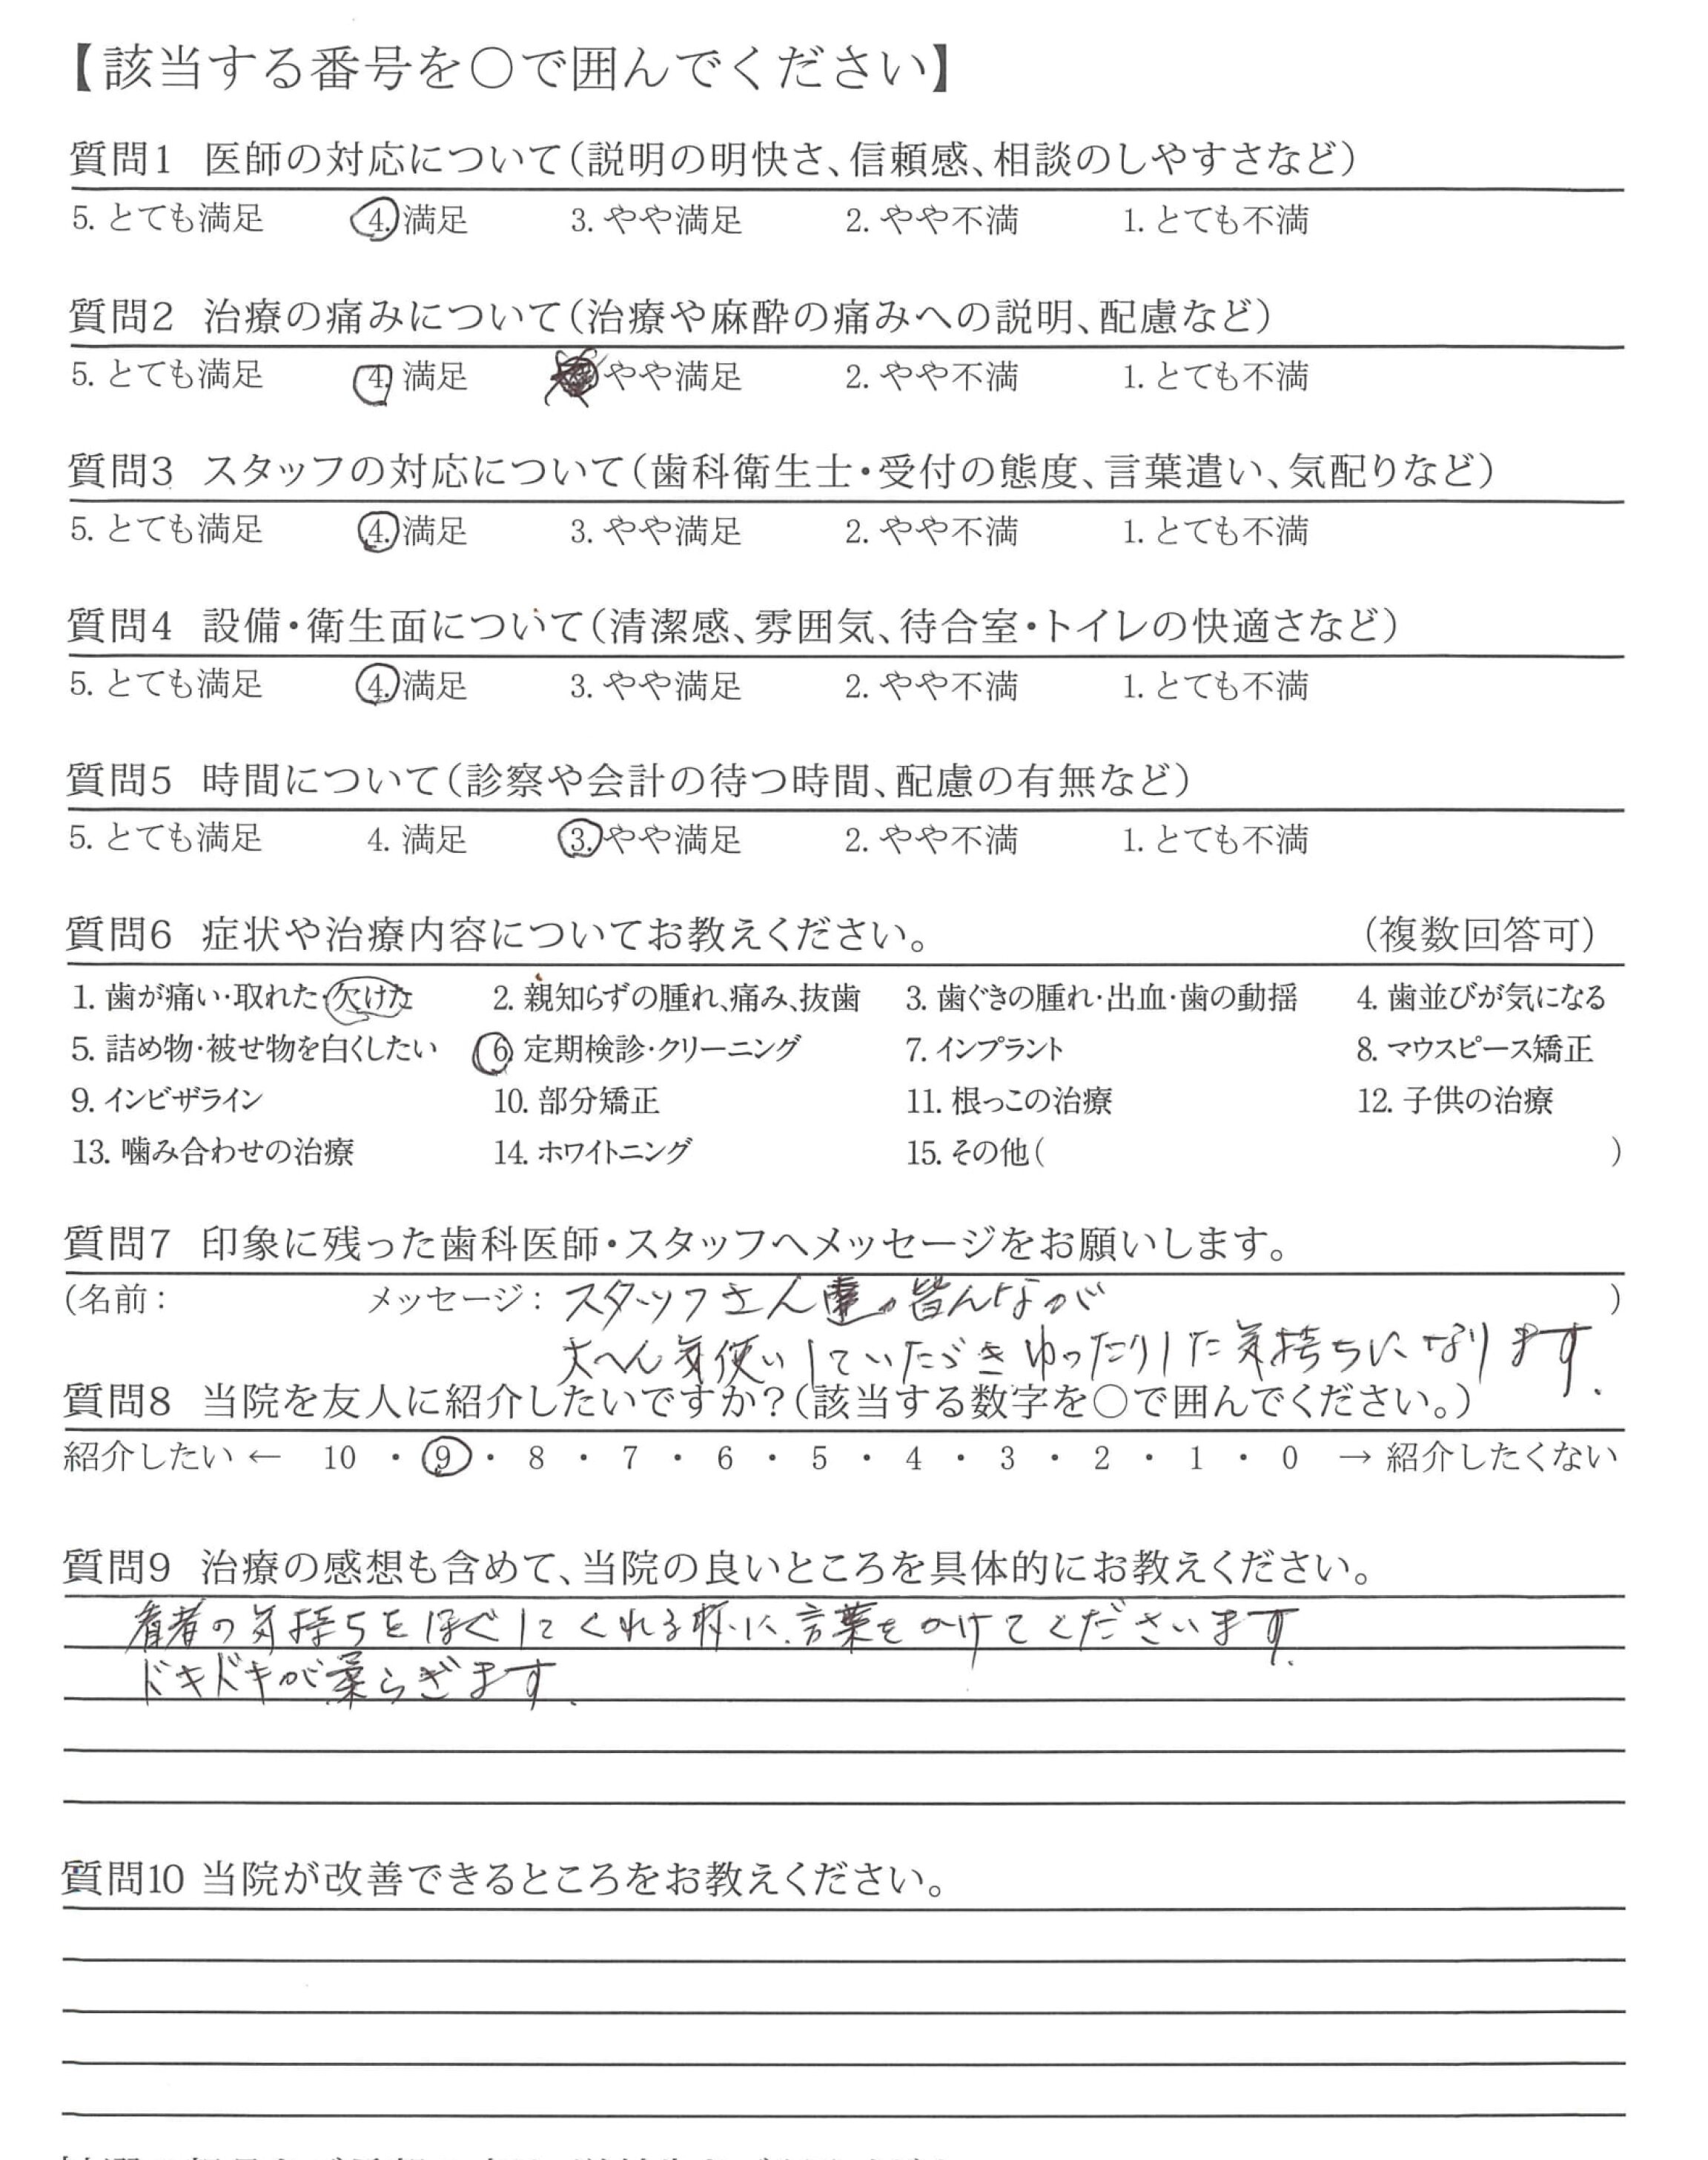 【該当する番号を○で囲んでください】
質問1 医師の対応について（説明の明快さ、信頼感、相談のしやすさなど）
5. とても満足 4. 満足 3. やや満足 2. やや不満 1. とても不満
質問2 治療の痛みについて（治療や麻酔の痛みへの説明、配慮など）
5. とても満足 4. 満足 やや満足 2. やや不満 1. とても不満
質問3 スタッフの対応について（歯科衛生士・受付の態度、言葉遣い、気配りなど）
5. とても満足 4. 満足 3. やや満足 2. やや不満 1. とても不満
質問4 設備・衛生面について（清潔感、雰囲気、待合室・トイレの快適さなど）
5. とても満足 4. 満足 3. やや満足 2. やや不満 1. とても不満
質問5 時間について（診察や会計の待つ時間、配慮の有無など）
5. とても満足 4. 満足 3. やや満足 2. やや不満 1. とても不満
質問6 症状や治療内容についてお教えください。 （複数回答可）
1. 歯が痛い・取れた・欠けた 2. 親知らずの腫れ、痛み、抜歯 3. 歯ぐきの腫れ・出血・歯の動揺 4. 歯並びが気になる
5. 詰め物・被せ物を白くしたい 6. 定期検診・クリーニング 7. インプラント 8. マウスピース矯正
9. インビザライン 10. 部分矯正 11. 根っこの治療 12. 子供の治療
13. 噛み合わせの治療 14. ホワイトニング 15. その他（ ）
質問7 印象に残った歯科医師・スタッフへメッセージをお願いします。
（名前： メッセージ：スタッフさん達の皆んなが ）
大へん気使いしていただきゆったりした気持ちになります.
質問8 当院を友人に紹介したいですか？（該当する数字を○で囲んでください。）
紹介したい ← 10 ・ 9 ・ 8 ・ 7 ・ 6 ・ 5 ・ 4 ・ 3 ・ 2 ・ 1 ・ 0 → 紹介したくない
質問9 治療の感想も含めて、当院の良いところを具体的にお教えください。
者の気持ちをほぐしてくれる様に、言葉をかけてくださいます.
ドキドキがらぎます.
質問10 当院が改善できるところをお教えください。